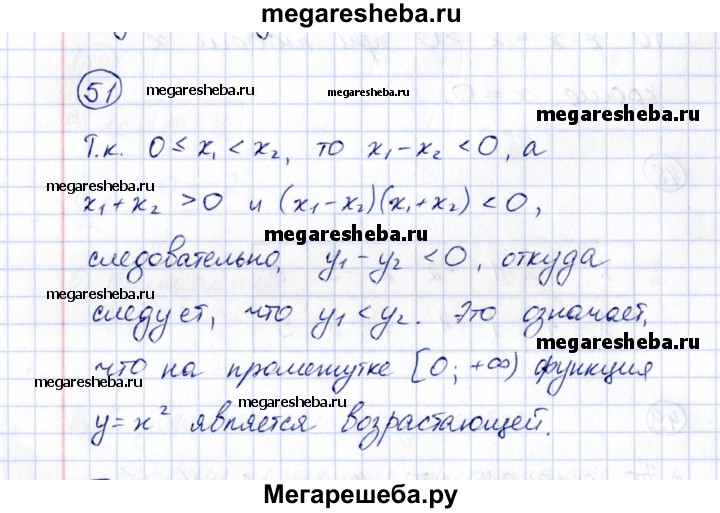 megaresheba.ru
51
megaresheba.ru
megaresheba.ru
megaresheba.ru
Т.к. 0 ≤ x₁ < x₂, то x₁ - x₂ < 0, а
megaresheba.ru
x₁ + x₂ > 0 и (x₁ - x₂)(x₁ + x₂) < 0,
megaresheba.ru
следовательно, y₁ - y₂ < 0, откуда
megaresheba.ru
следует, что y₁ < y₂. Это означает,
megaresheba.ru
что на промежутке [0; +∞) функция
megaresheba.ru
megaresheba.ru
y = x² является возрастающей.
Мегарешеба.ру